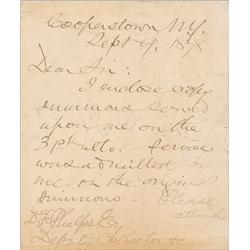 Cooperstown N.Y.
Sept 9, 1878
Dear Sir:
I enclose copy
summons served
upon me on the
31st ulto. - Service
was admitted by
me on the original
summons - Please
attend
D. F. Phelps Esq
Deputy Collector &c